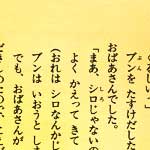 くるしい。」
ブンを たすけだした
おばあさんでした。
「まあ、シロじゃないの
よく かえって きて
(おれは シロなんかじ
ブンは いおうと しま
でも、おばあさんが